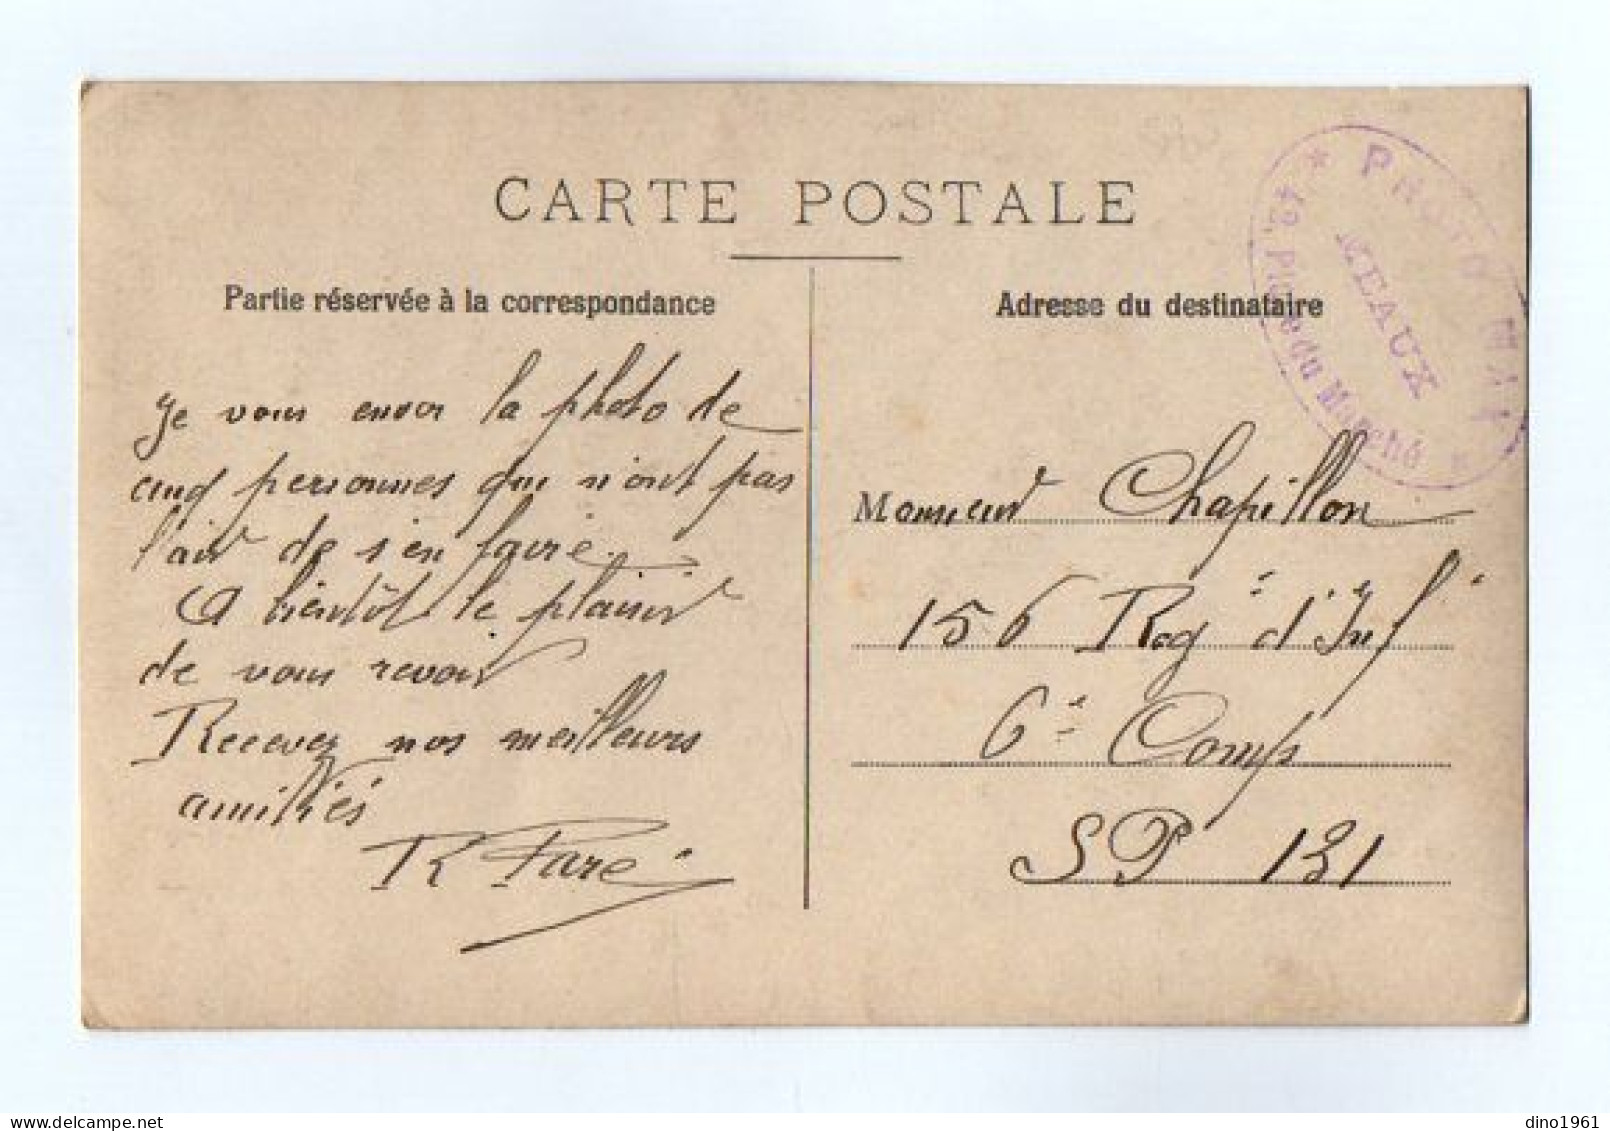 CARTE POSTALE
Partie réservée à la correspondance
Je vous envoi la photo de
cinq personnes qui n'ont pas
l'air de s'en faire.
A bientôt le plaisir
de vous revoir
Recevez nos meilleurs
amitiés
R Fare
Adresse du destinataire
Monsieur Chapillon
156 Reg d'Inf
6e Comp
SP 131
* PHOTO MAX *
MEAUX
42, Place du Marché
dino1961